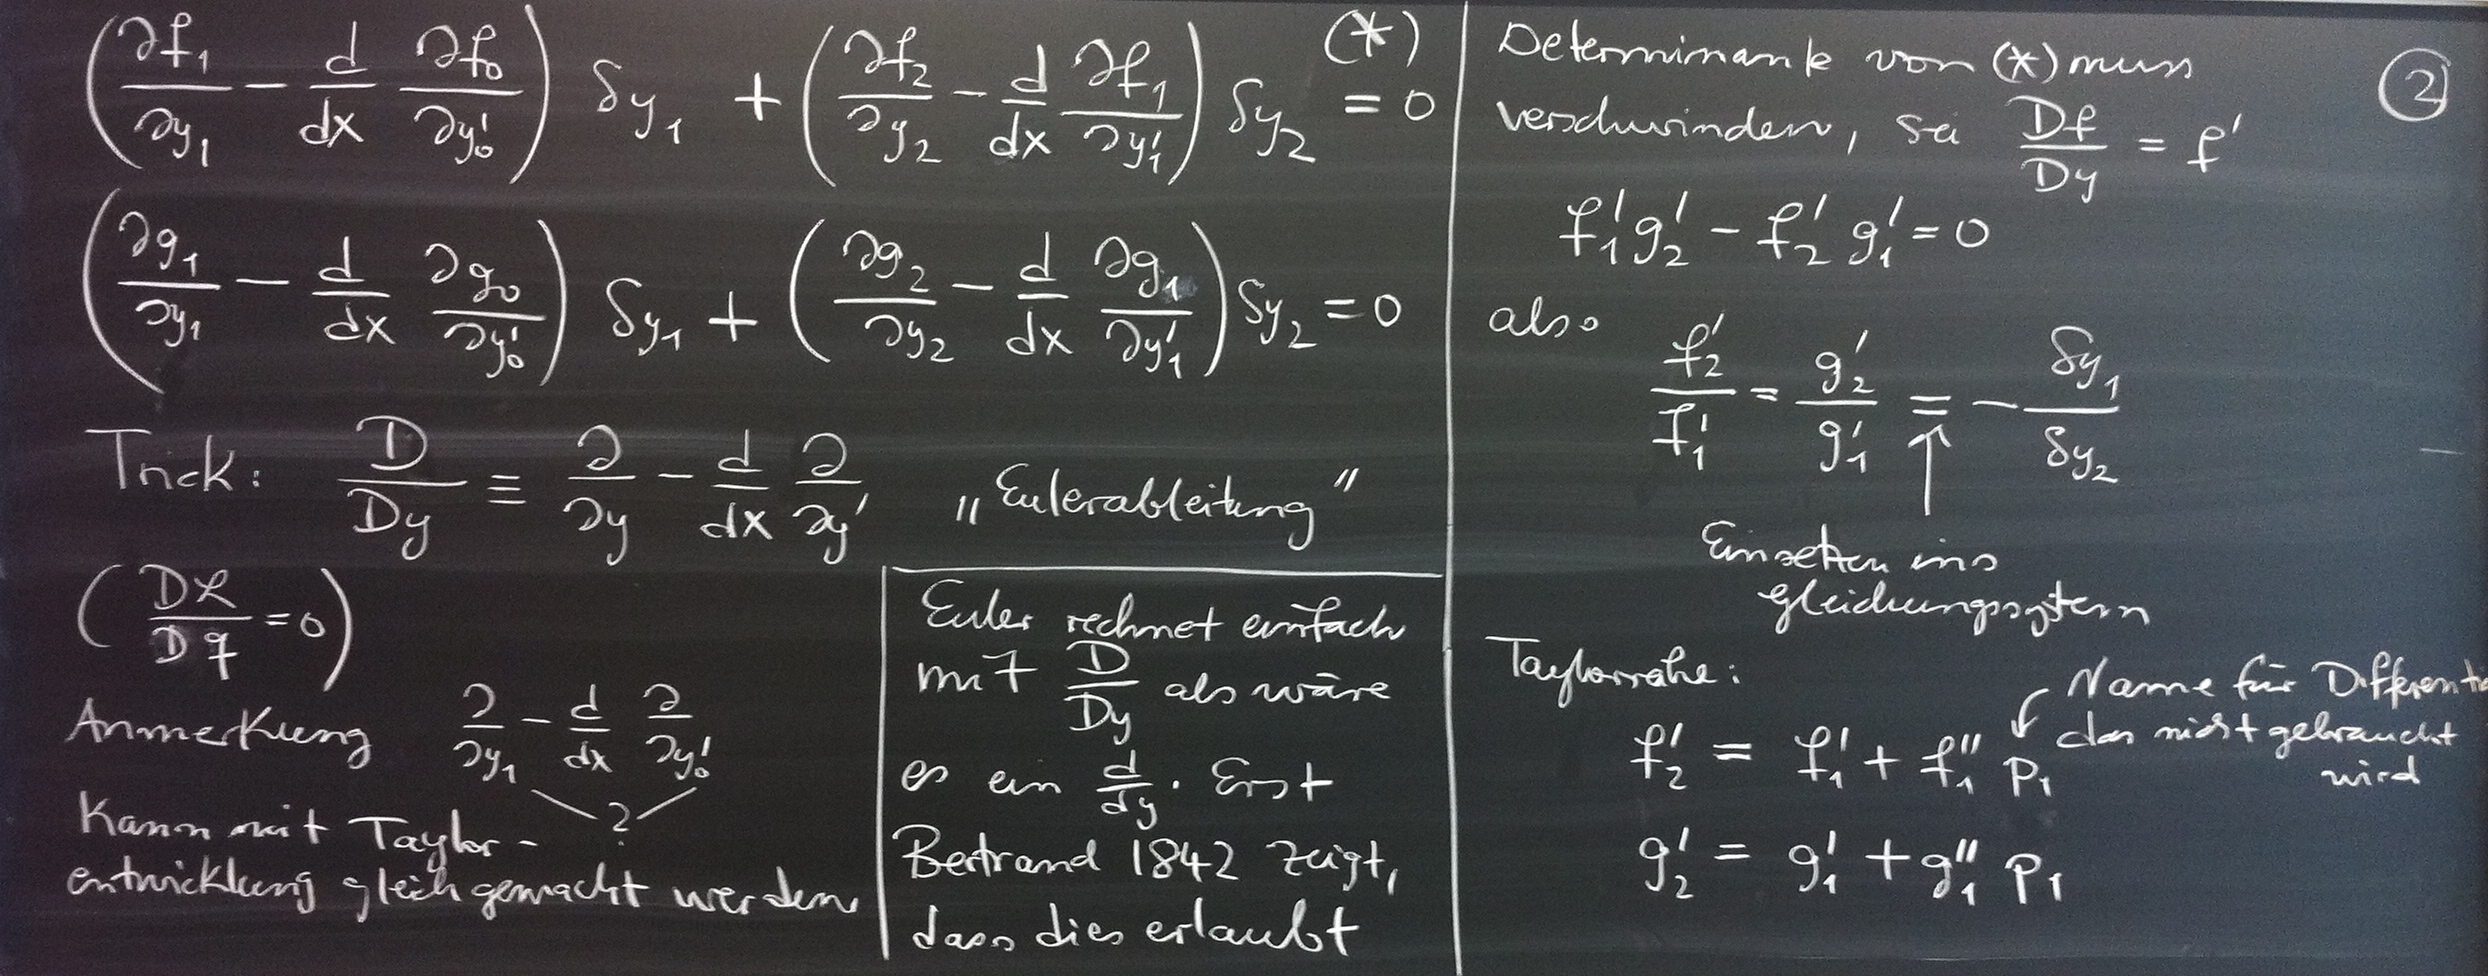 (∂f₁/∂y₁ − d/dx ∂f₀/∂y₀') δy₁ + (∂f₂/∂y₂ − d/dx ∂f₁/∂y₁') δy₂ = 0 (*)
(∂g₁/∂y₁ − d/dx ∂g₀/∂y₀') δy₁ + (∂g₂/∂y₂ − d/dx ∂g₁/∂y₁') δy₂ = 0
Trick: D/Dy ≡ ∂/∂y − d/dx ∂/∂y' „Eulerableitung"
(Dℒ/Dq = 0)
Anmerkung ∂/∂y₁ − d/dx ∂/∂y₀'
?
Kann mit Taylor-
entwicklung gleich gemacht werden
Euler rechnet einfach
mit D/Dy als wäre
es ein d/dy. Erst
Bertrand 1842 zeigt,
dass dies erlaubt
②
Determinante von (*) muss
verschwinden, sei Df/Dy = f'
f₁' g₂' − f₂' g₁' = 0
also
f₂'/f₁' = g₂'/g₁' = − δy₁/δy₂
↑
Einsetzen ins
Gleichungssytem
Taylorreihe:
Name für
das nicht gebraucht
wird
f₂' = f₁' + f₁'' p₁
g₂' = g₁' + g₁'' p₁